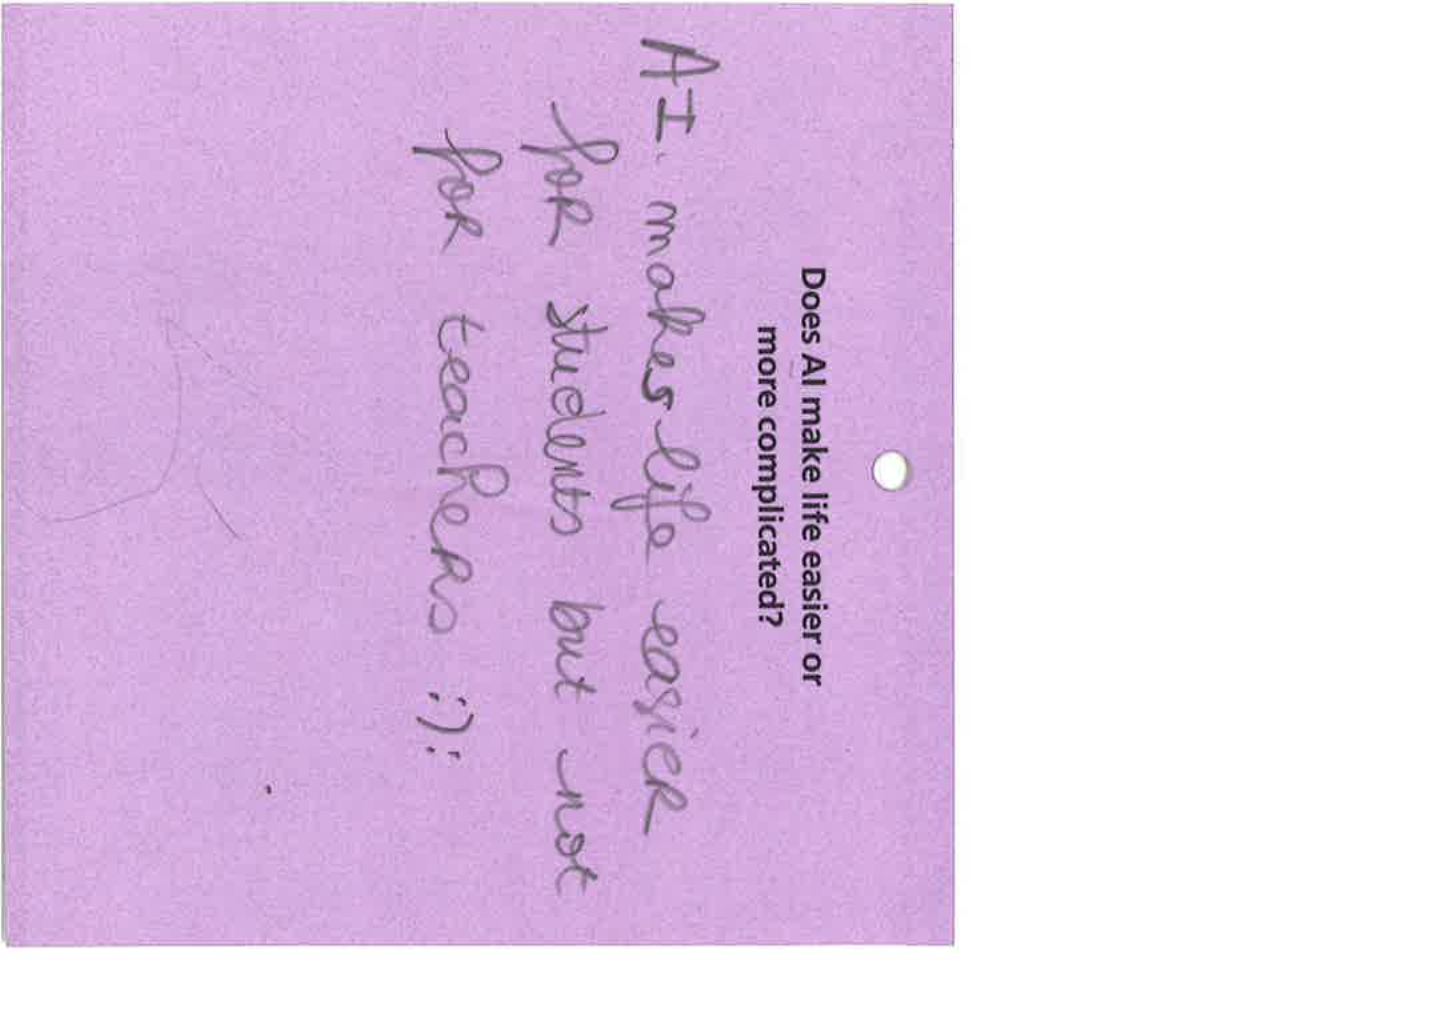 Does AI make life easier or
more complicated?
AI. makes life easier
for students but not
for teachers :):